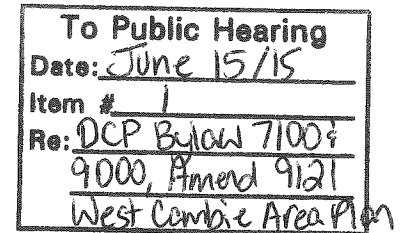 To Public Hearing
Date: June 15/15
Item # 1
Re: OCP Bylaw 7100 &
9000, Amend 9121
West Cambie Area Plan